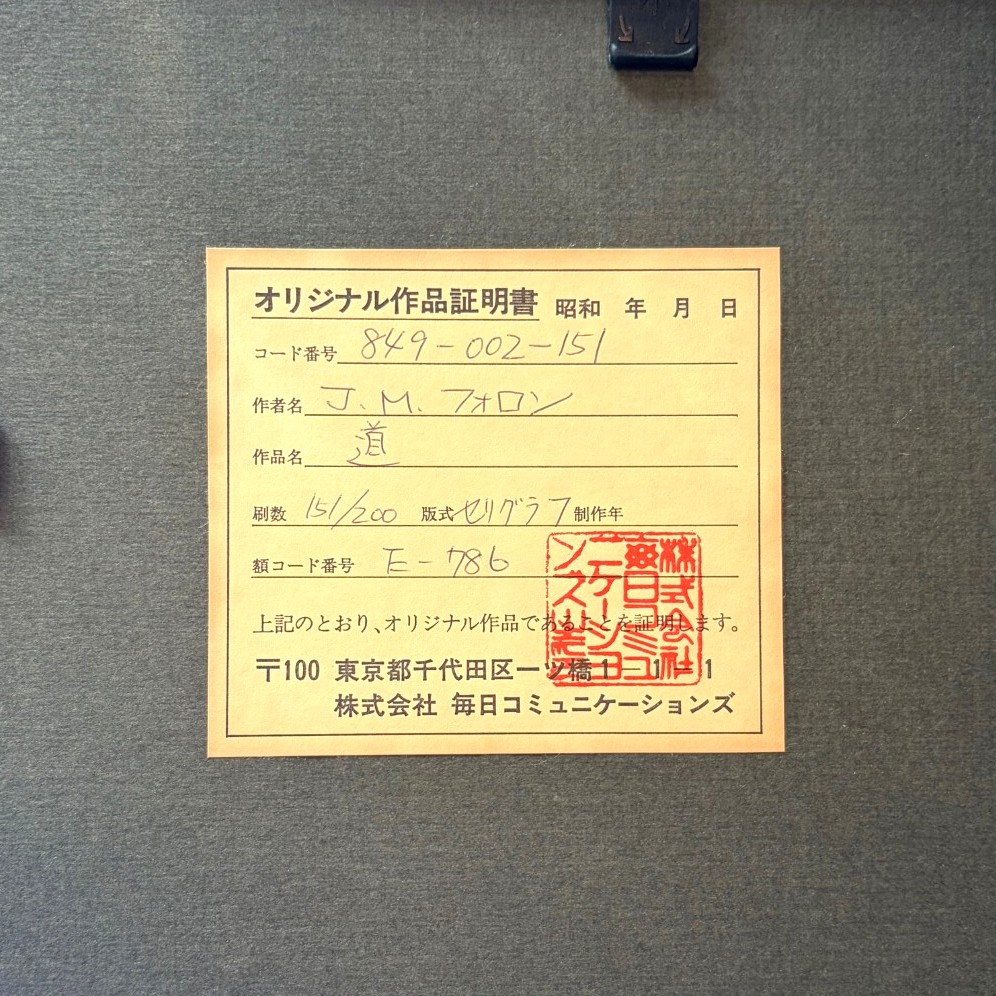 オリジナル作品証明書 昭和 年 月 日
コード番号 849-002-151
作者名 J.M.フォロン
作品名 道
刷数 151/200 版式 セリグラフ 制作年
額コード番号 E-786
上記のとおり、オリジナル作品であることを証明します。
〒100 東京都千代田区一ツ橋1-1-1
株式会社 毎日コミュニケーションズ
株式会社
毎日コミュ
ニケーショ
ンズ